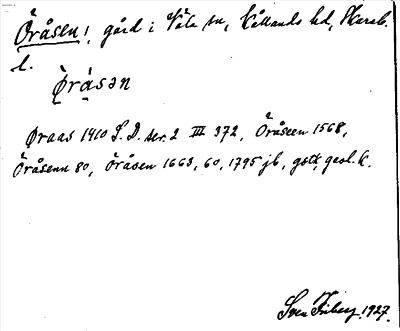 Öråsen, gård i Våla sn, Kållands hd, Skarab.
l.
Øråsən
Øraas 1410 S. D. ser. 2 III 372, Öråseen 1568,
Öråsenn 80, Öråsen 1663, 60, 1795 jb, gstk, geol. k.
Sven Friberg 1927.